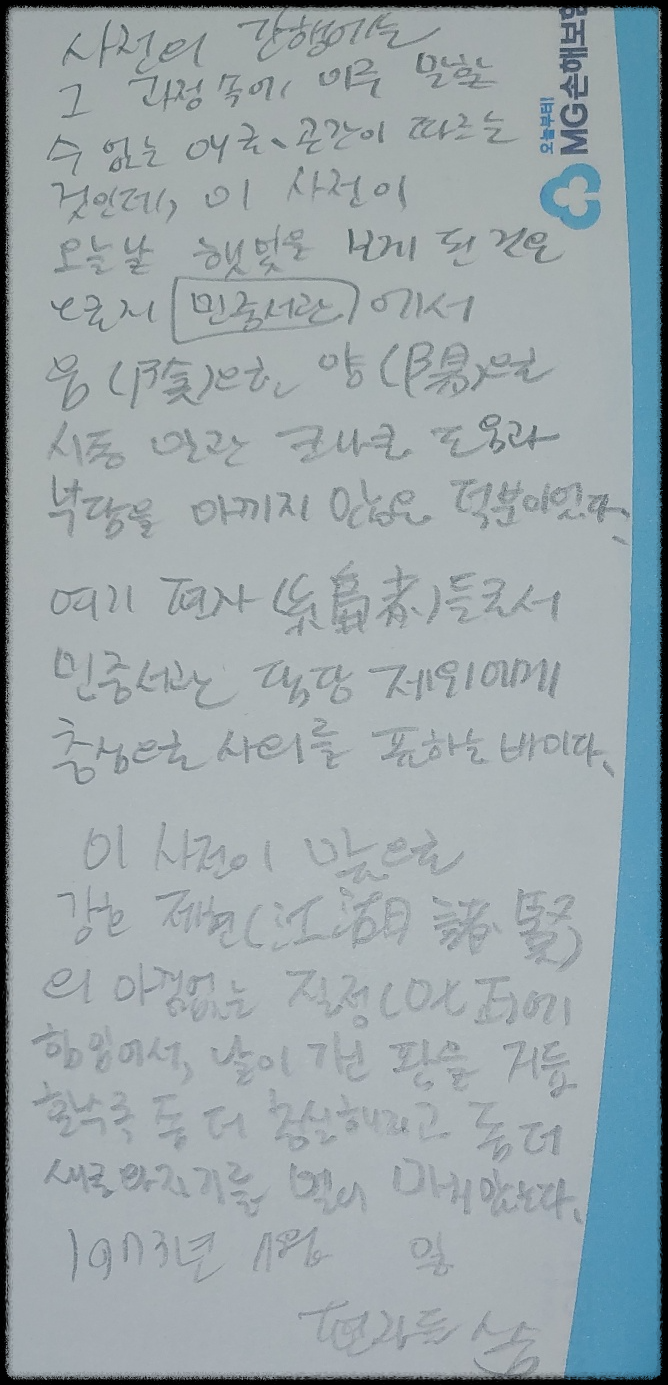 오늘부터!
MG손해보험
사전의 간행에는
그 과정 속에 이루 말할
수 없는 애로、곤란이 따르는
것인데, 이 사전이
오늘날 햇빛을 보게 된 것은
오로지 민중서관에서
음(陰)으로 양(陽)으로
시종 일관 크나큰 도움과
부담을 아끼지 않은 덕분이었다.
여기 편자(編者)들로서
민중서관 당 제위에게
충심으로 사의를 표하는 바이다.
이 사전이 앞으로
강호 제현(江湖 諸賢)
의 아낌없는 질정(叱正)에
힘입어서, 날이 가고 판을 거듭
할수록 좀 더 충실해지고 좀 더
새로와지기를 빌어 마지 않는다.
1973년 월 일
편자들 씀